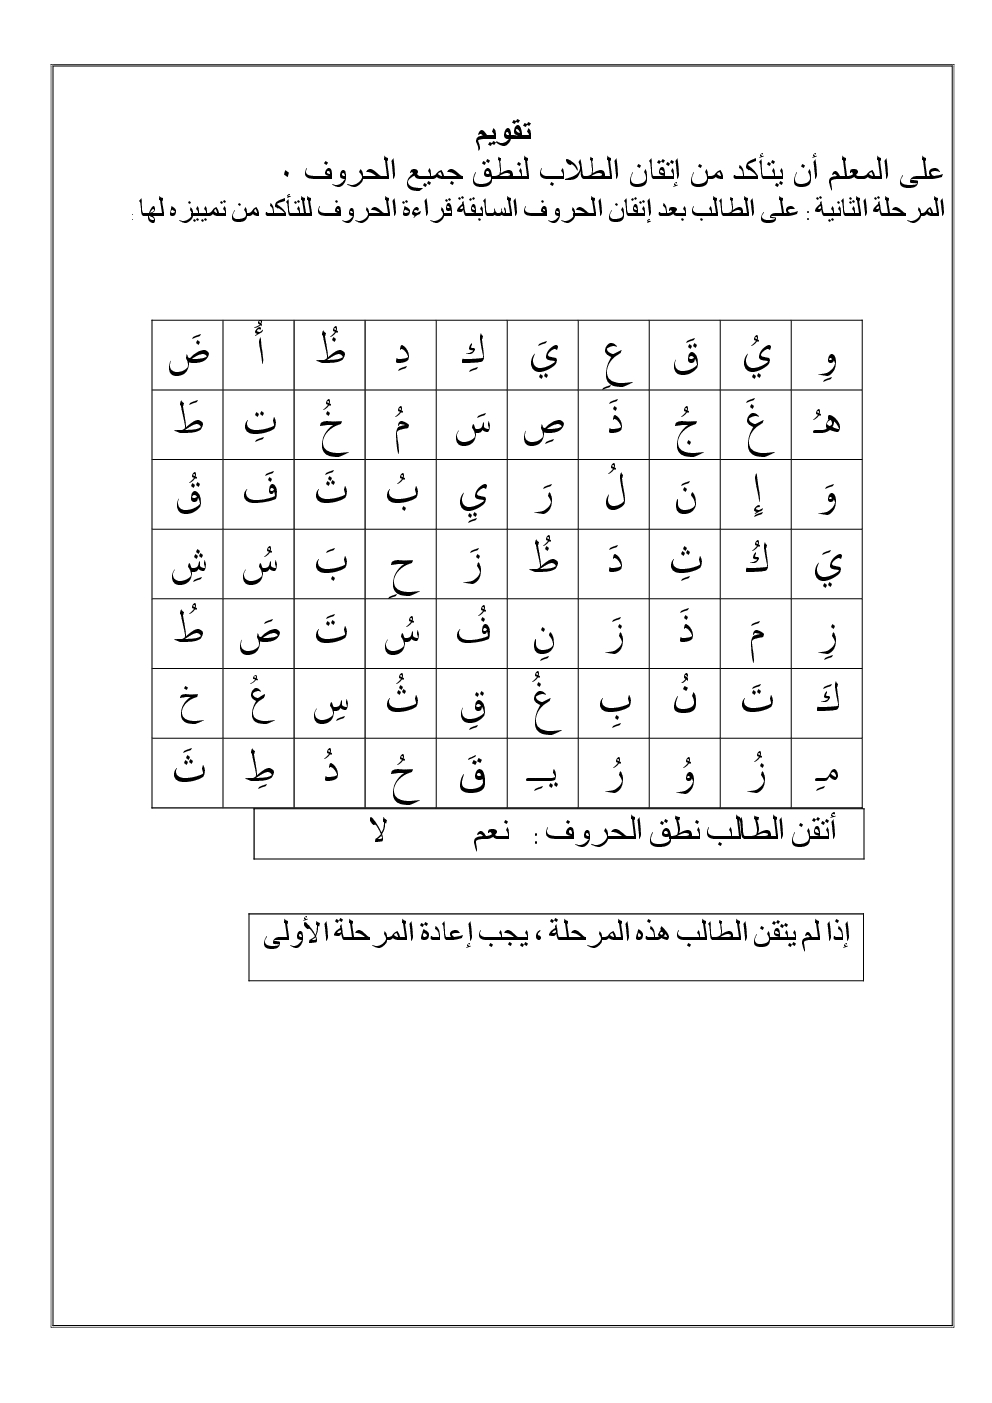 تقويم
على المعلم أن يتأكد من إتقان الطلاب لنطق جميع الحروف ٠
المرحلة الثانية : على الطالب بعد إتقان الحروف السابقة قراءة الحروف للتأكد من تمييزه لها :
وِ يُ قَ عِ يَ كِ دِ ظُ أُ ضَ
هـُ غَ جُ ذَ صِ سَ مُ خُ تِ طَ
وَ إِ نَ لُ رَ يِ بُ ثَ فَ قُ
يَ كُ ثِ دَ ظُ زَ حِ بَ سُ شِ
زِ مَ ذَ زَ نِ فُ سُ تَ صَ طُ
كَ تَ نُ بِ غُ قِ ثُ سِ عُ خ
مـِ زُ وُ رُ يـِ قَ حُ دُ طِ ثَ
أتقن الطالب نطق الحروف : نعم لا
إذا لم يتقن الطالب هذه المرحلة ، يجب إعادة المرحلة الأولى